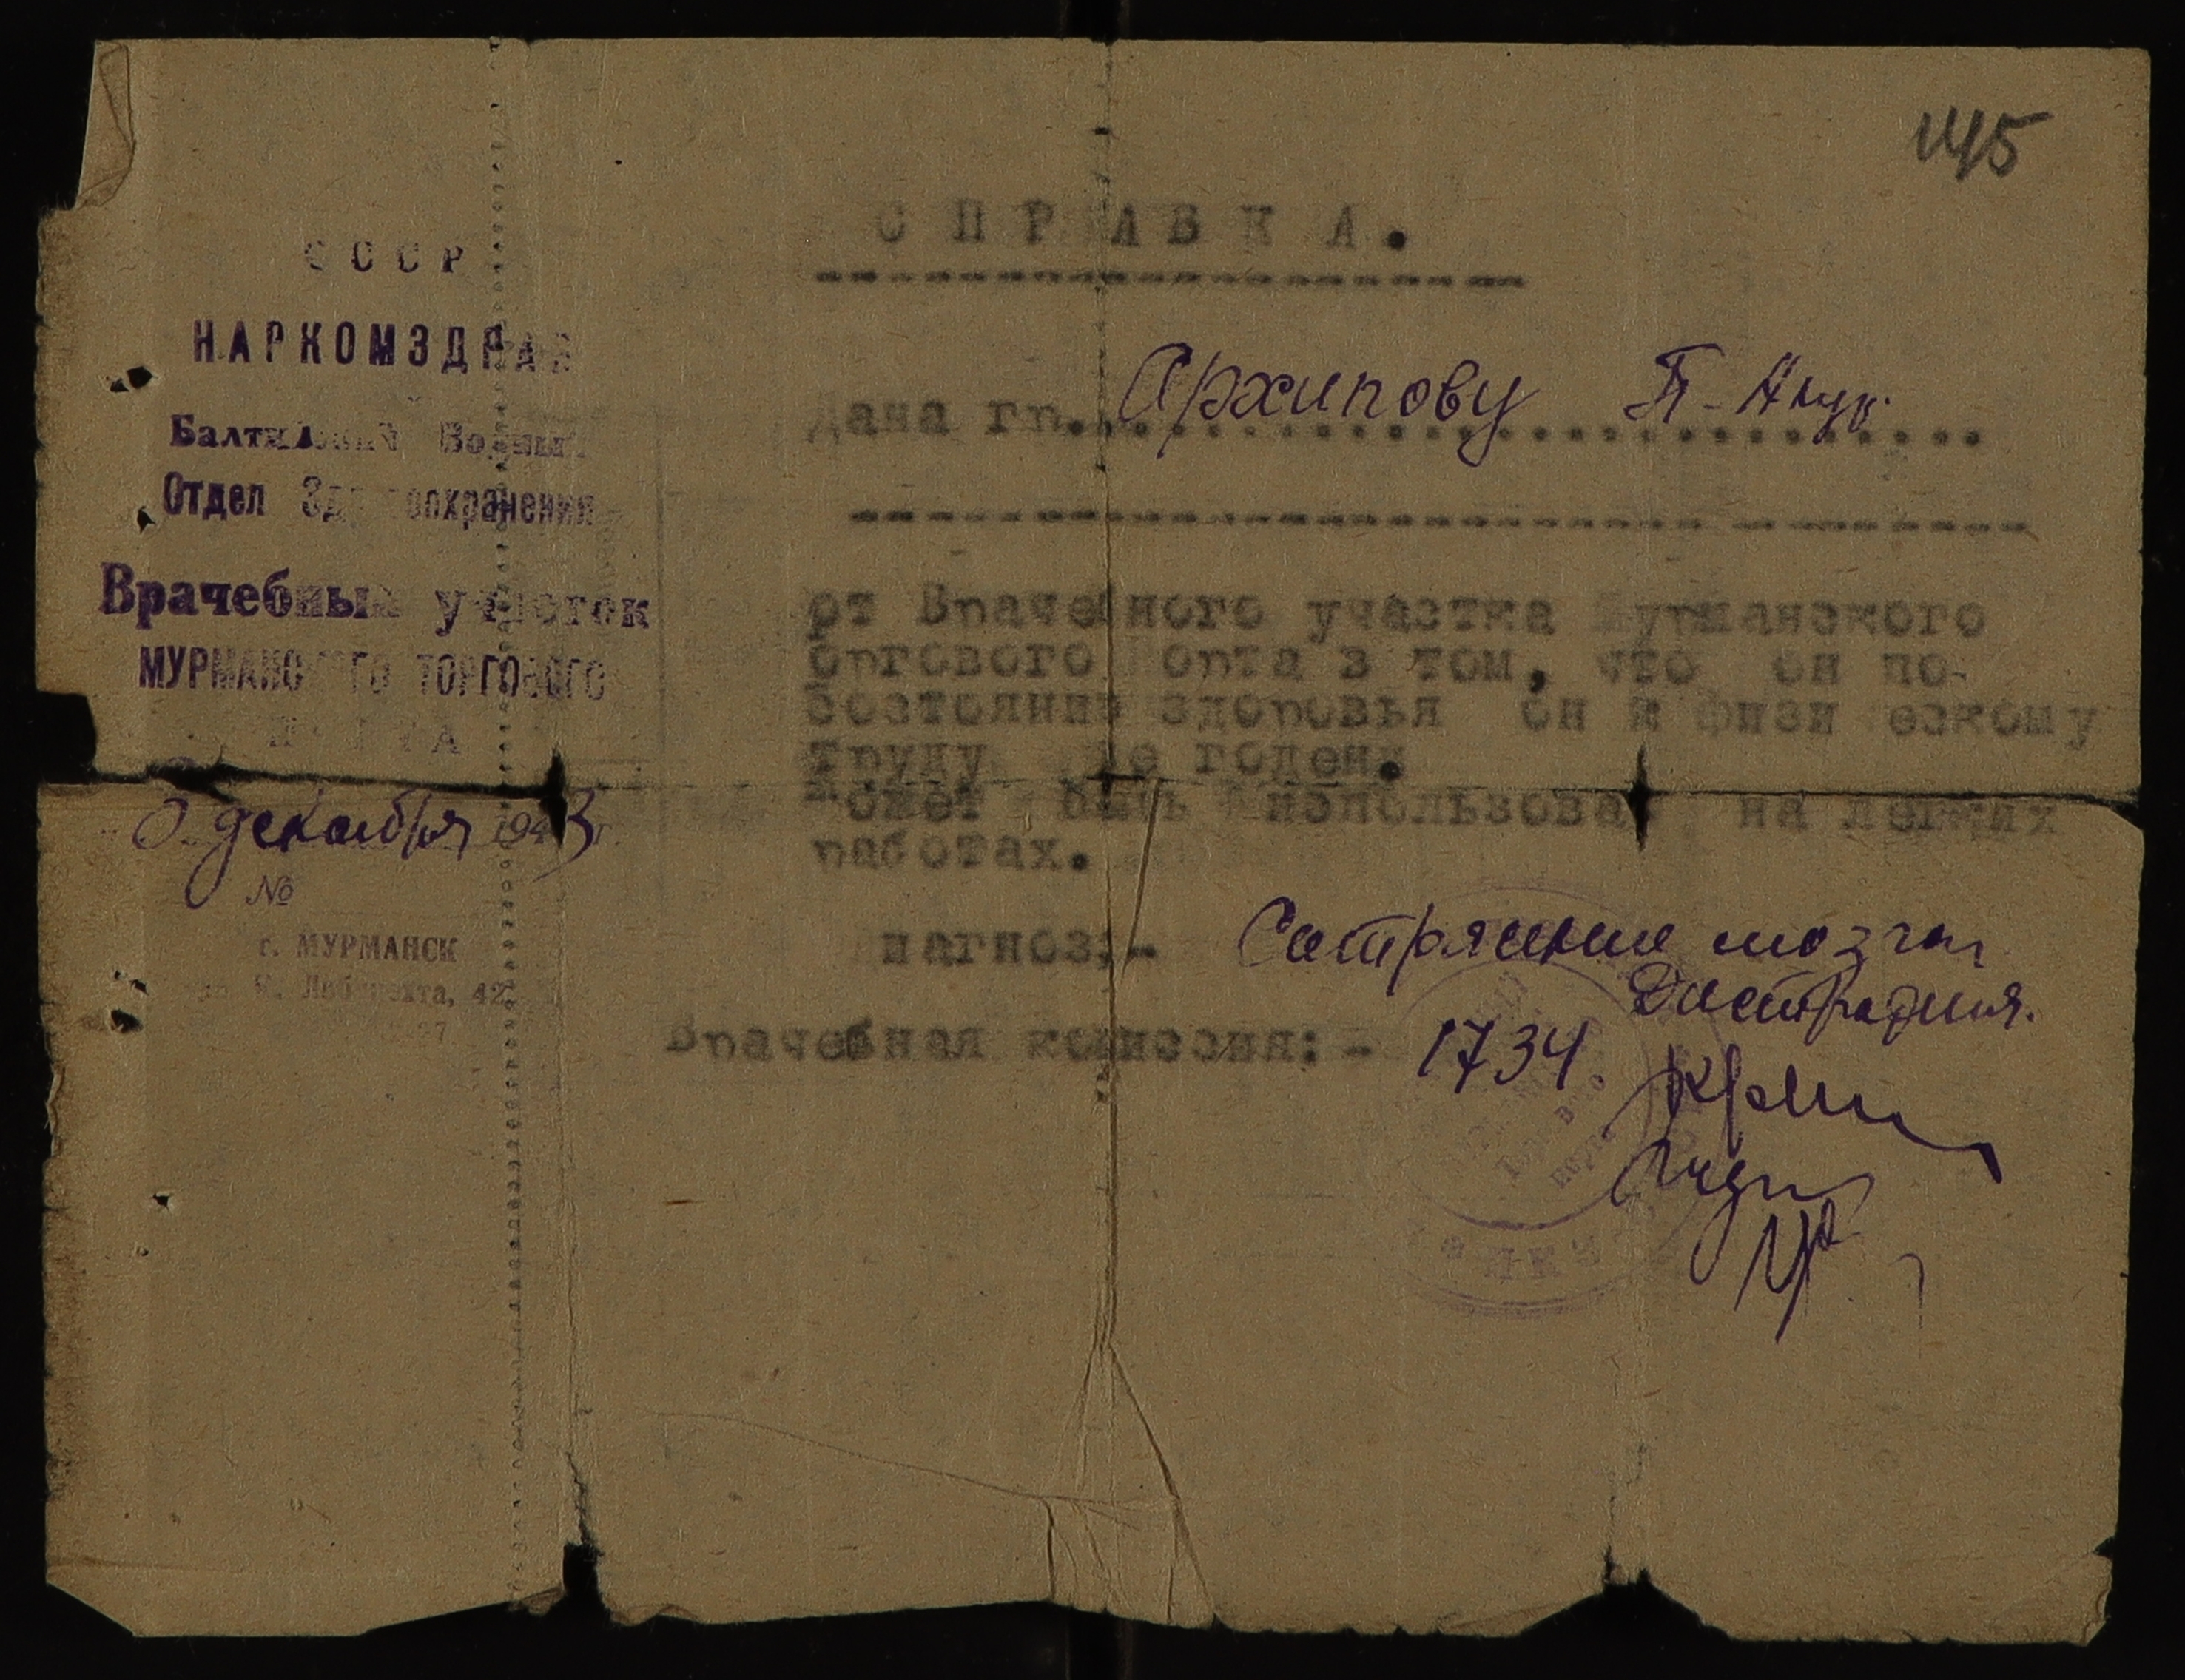 145
СПРАВКА.
СССР
НАРКОМЗДРАВ
Дана гр. Архипову П-
Балтийский Водный
Отдел Здравоохранения
Врачебный участок
МУРМАНСКОГО ТОРГОВОГО
ПОРТА
декабря 1943 г.
№
г. МУРМАНСК
Либкнехта, 42
от Врачебного участка Мурманского
оргового орта в том, что он по
состоянию здоровья он к физи ескому
труду не годен.
ожет быть использова на легких
работах.
иагноз:- Сотрясение мозга
Дистрофия.
Врачебная комиссия:- 1734